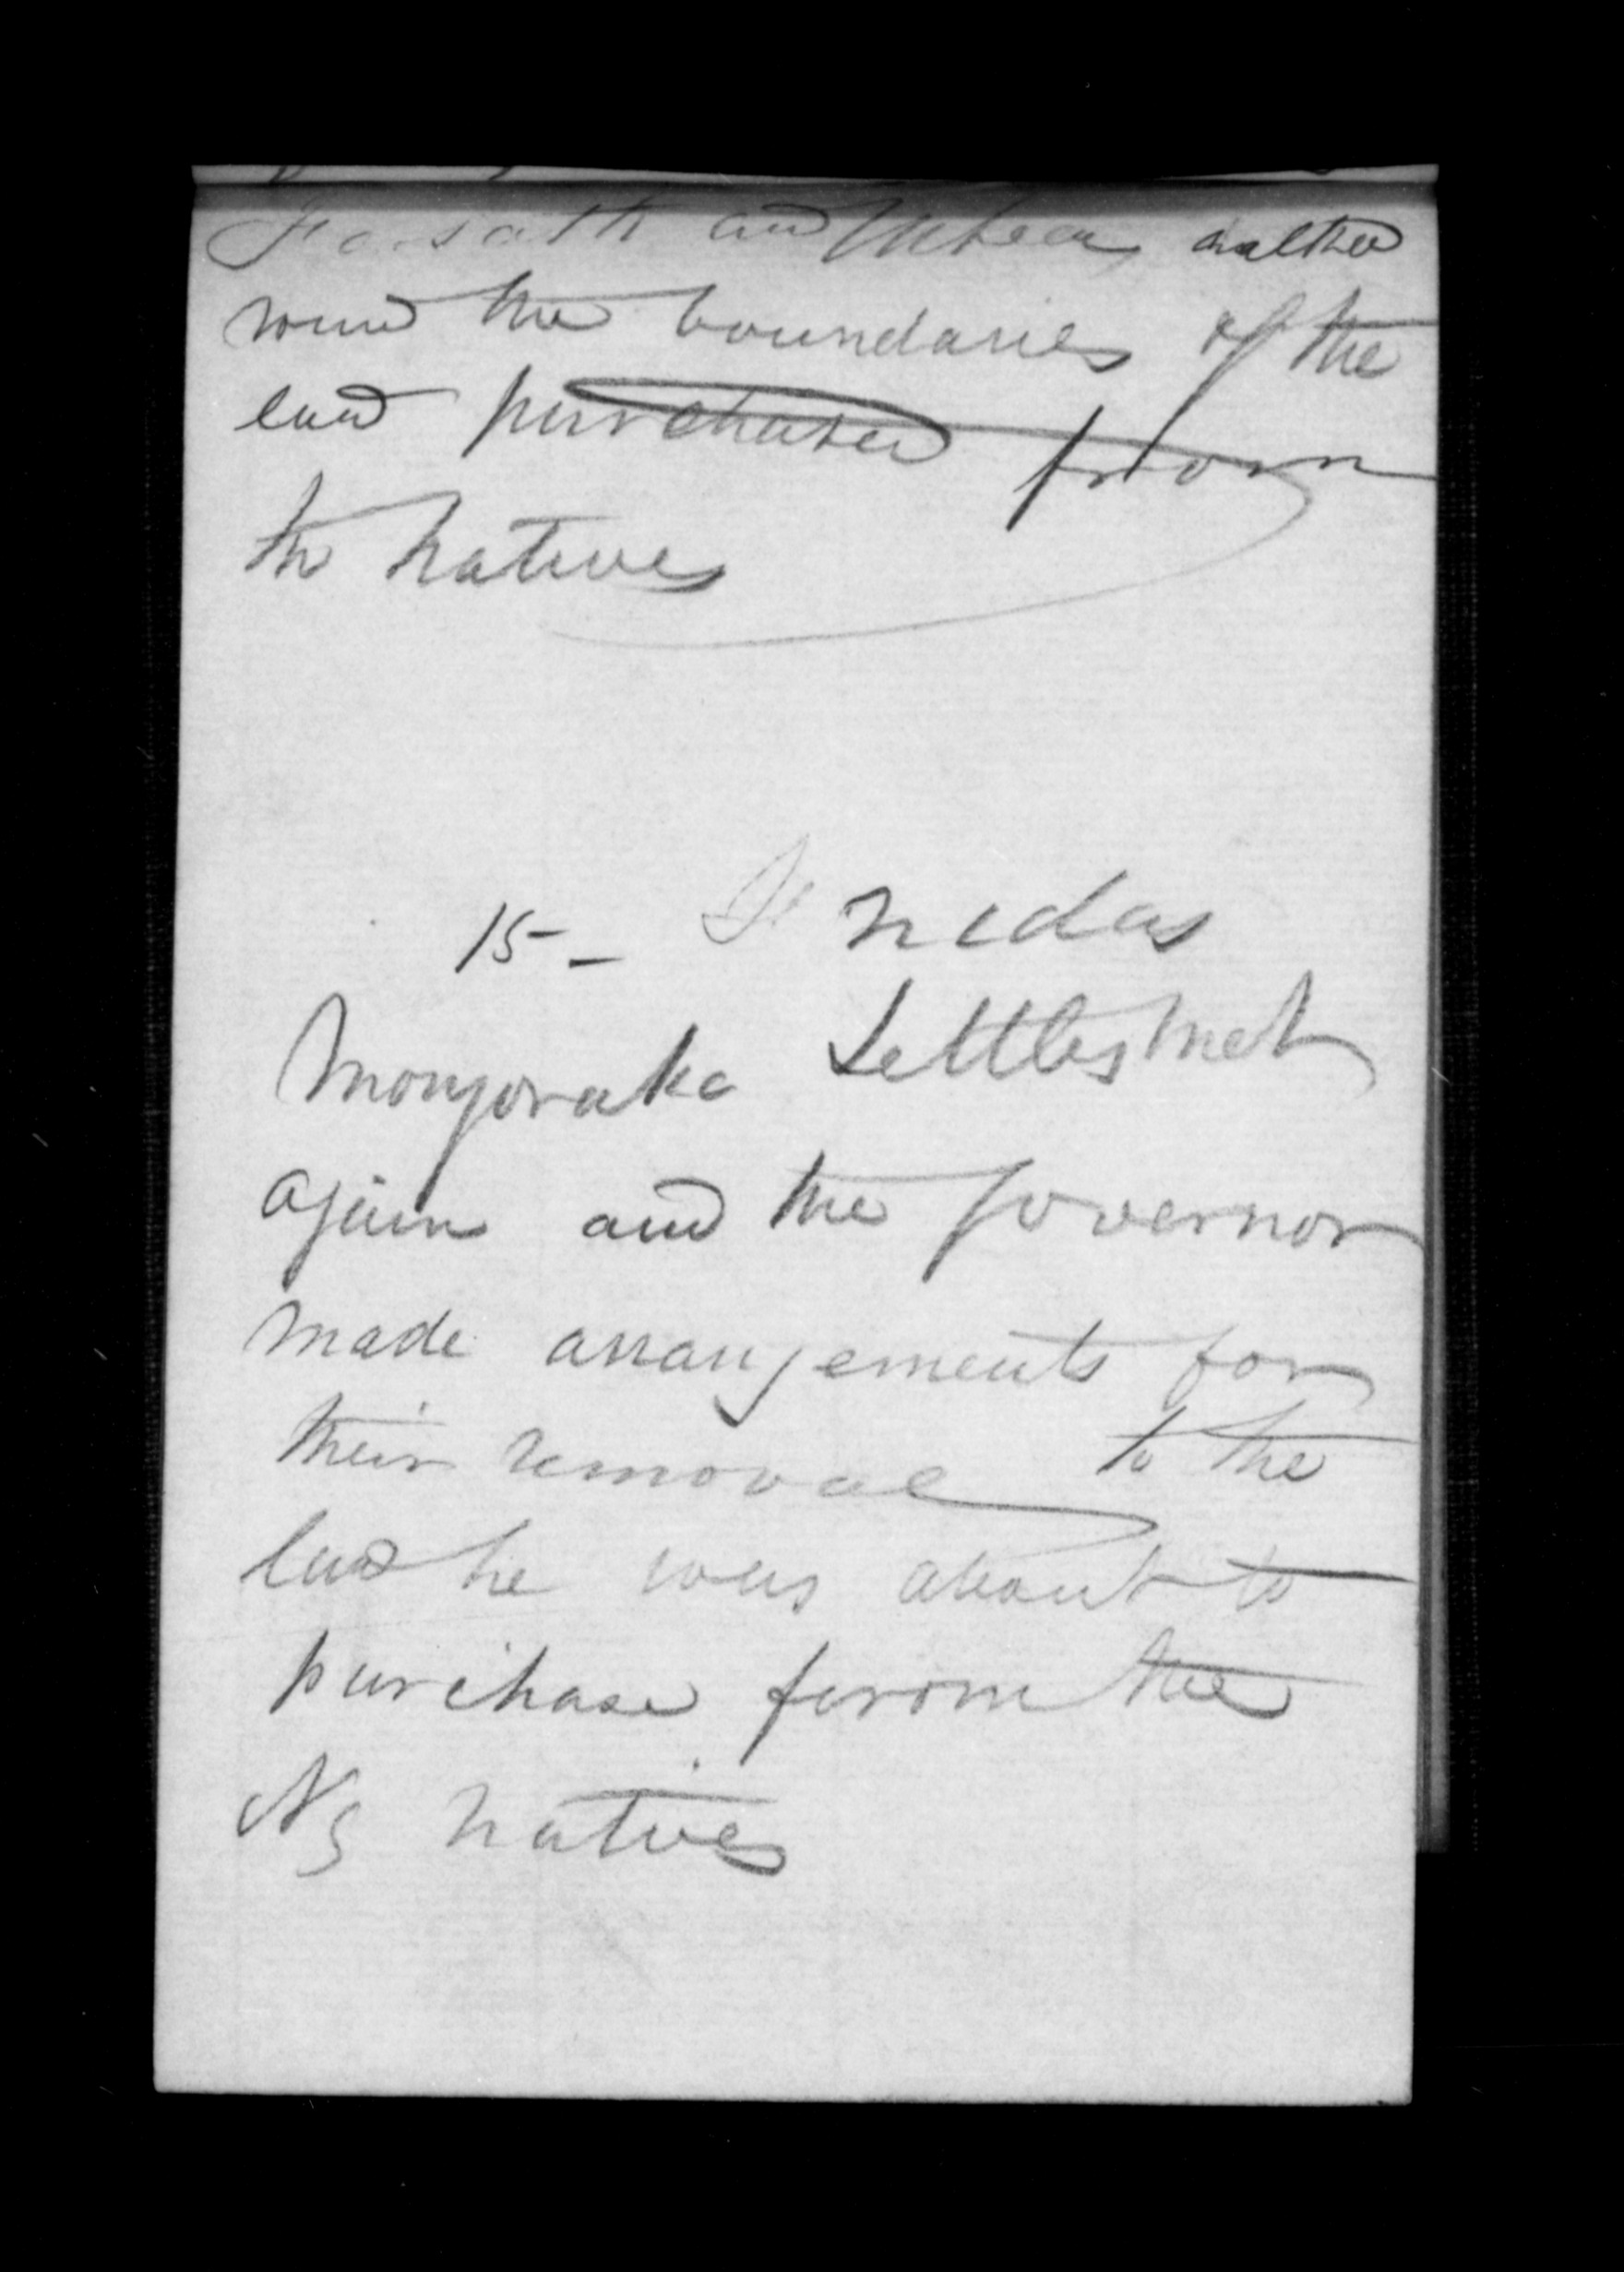 Forsaith and walked
round the boundaries of the
land purchased from
the natives
15 - Fridas
Mongoraka Settlers met
again and the Governor
made arrangements for
their removal to the
land he was about to
purchase from the
Ng natives